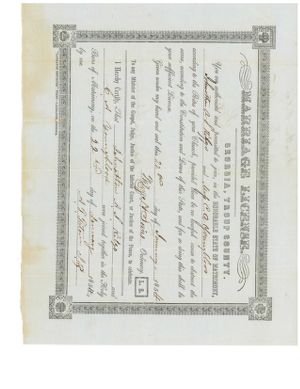 MARRIAGE LICENSE.
GEORGIA, TROUP COUNTY.
You are authorized, and permitted to join, in the HONORABLE STATE OF MATRIMONY,
Johnston and Miss C. A. Youngblood
according to the Rites of your Church, provided there be no lawful cause to obstruct the
same, according to the Constitution and Laws of this State, and for so doing this shall be
your sufficient License.
Given under my hand and seal this 22nd day of January 1856
Ordinary. L. S.
To any Minister of the Gospel, Judge, Justice of the Inferior Court, or Justice of the Peace, to celebrate.
I Hereby Certify, That Johnston and
C. A. Youngblood were joined together in the Holy
Bans of Matrimony, on the 22nd day of January 1856
by me.